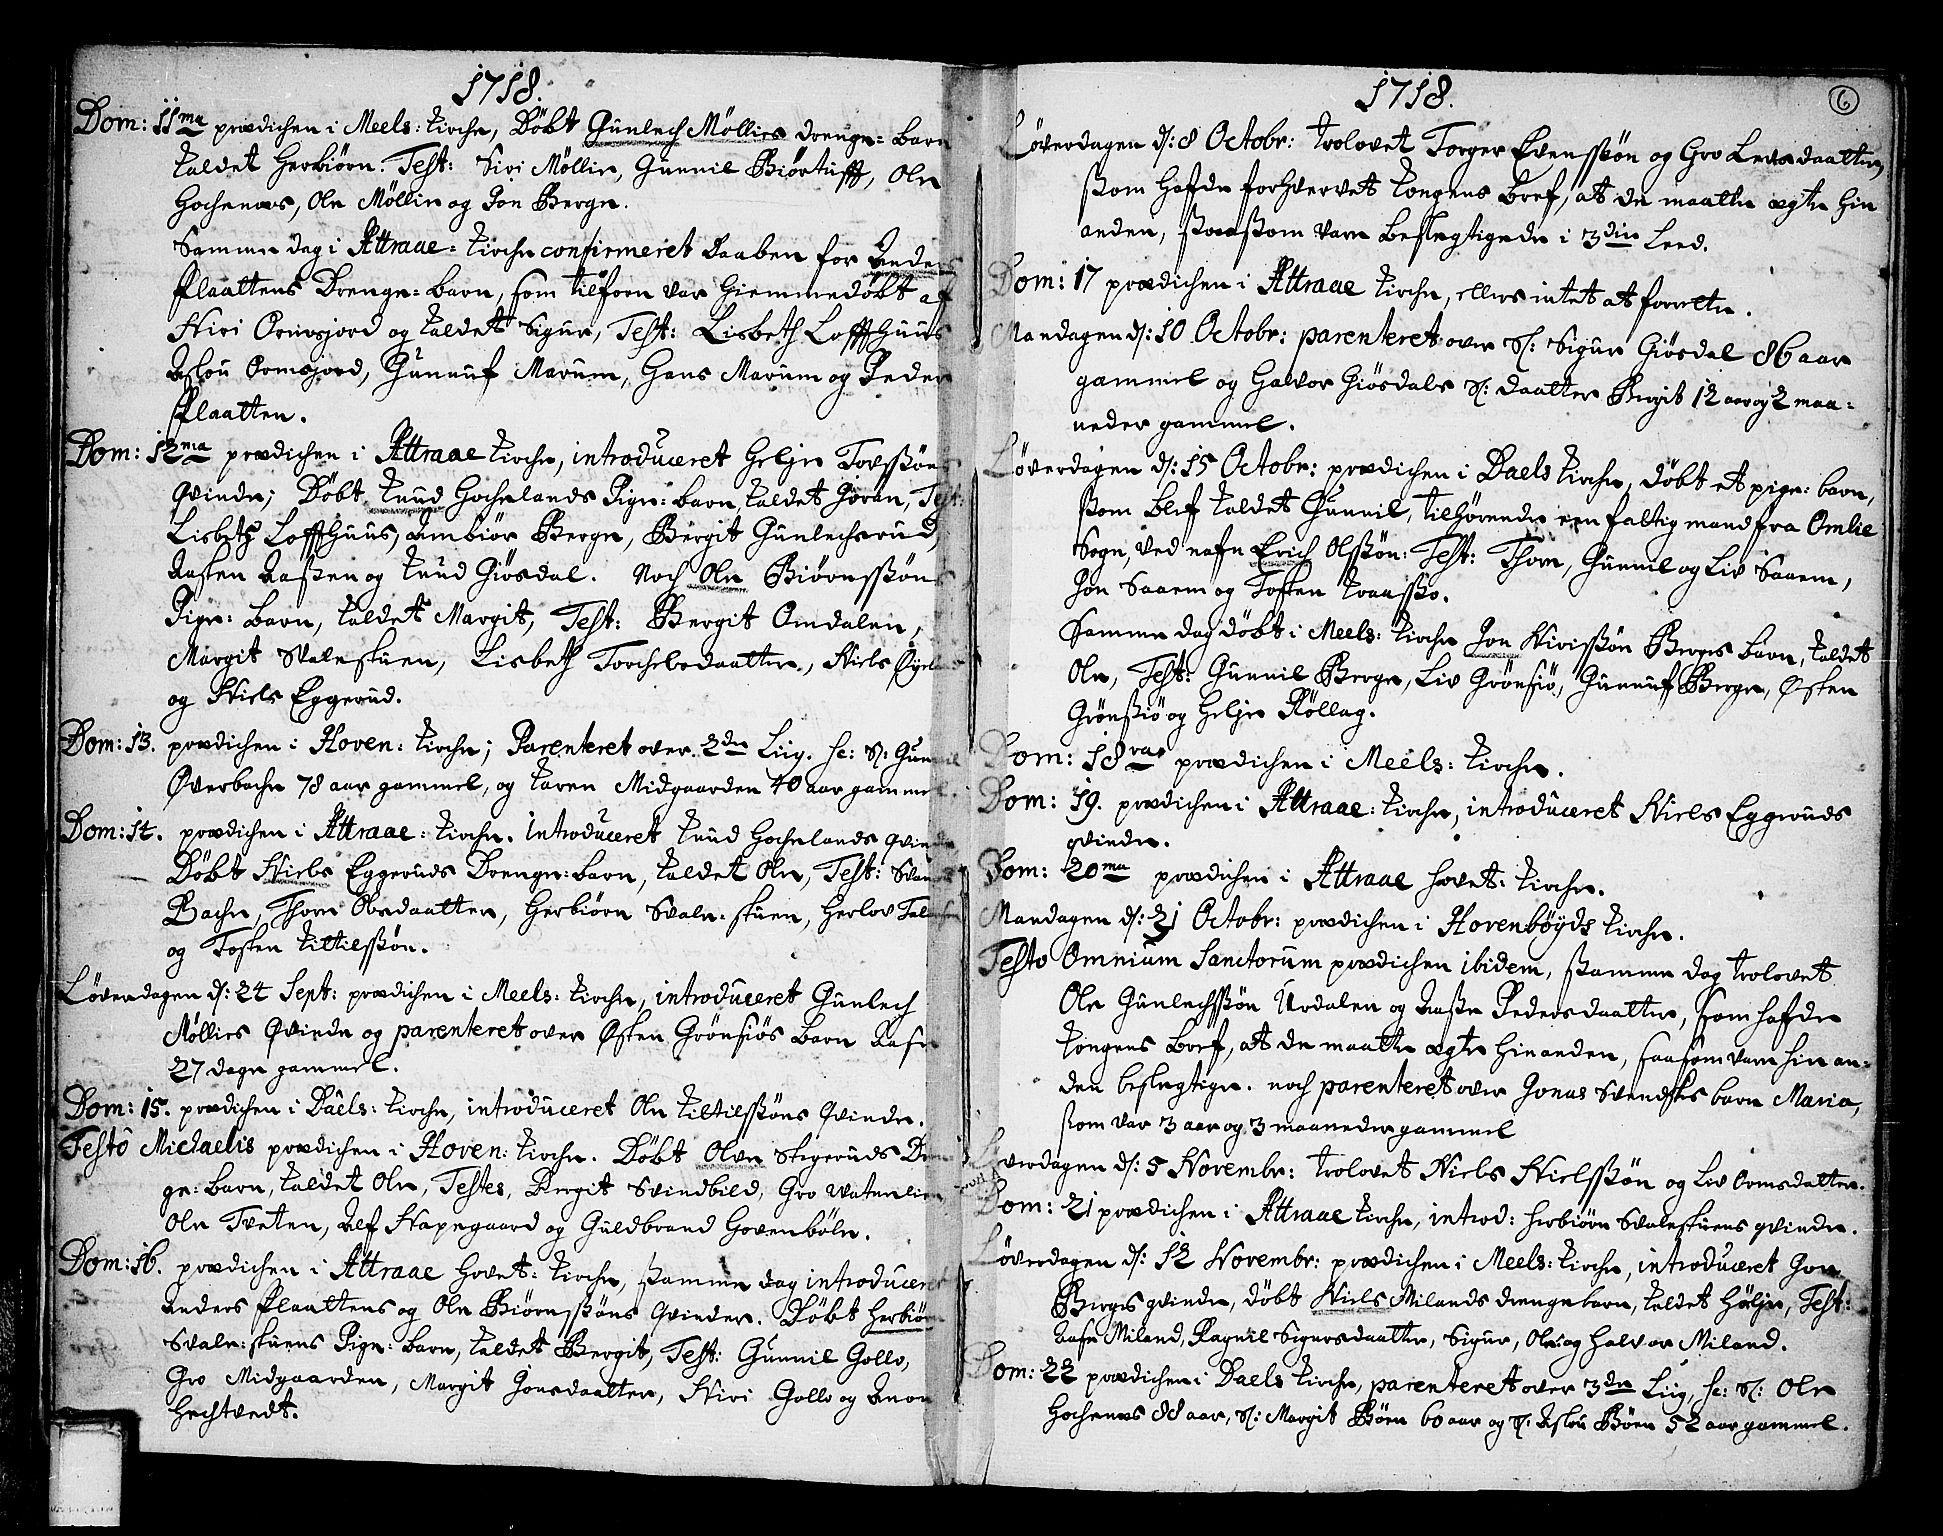 1718.
Dom: 11ma prædichen i Meels: kirche, Döbt Gunlech Möllies drenge: barn
kaldet Herbiörn. Test: Siri Möllie, Gunnil Biörtufft, Ole
Hochenæs, Ole Möllie og Jon Berge.
Samme dag i Attraae: kirche confirmeret Daaben for Anders
Plaattens Drenge: barn, som tilforn var hiemmedöbt af
Kiri Ormsjord og kaldet Sigur, Test: Lisbeth Loffthuus
Aslou Ormsjord, Gunnuf Marum, Hans Marum og Peder
Plaatten.
Dom: 12ma prædichen i Attraae kirche, introduceret Helje Tovssöns
Qvinde; Döbt Knud Hochelands Pige: barn, kaldet Göran, Test:
Lisbeth Loffthuus, Ambiör Berge, Bergit Gunlechsrud,
Aasten Aassen og Knud Giösdal. Noch Ole Biörnssöns
Pige: Barn, kaldet Margit, Test: Bergit Omdalen,
Margit Svalestuen, Lisbeth Torchelsdaatter, Niels
og Niels Eggerud.
Dom: 13. prædichen i Hoven: kirche; Parenteret over 2de Liig. sc: S: Gunnil
Överbache 78 aar gammel, og Karen Midgaarden 40 aar gammel.
Dom: 14. prædichen i Attraae: kirche. Introduceret Knud Hochelands qvinde
Döbt Niels Eggeruds Drenge: barn, kaldet Ole, Test:
Bache, Thore Olsdaatter, Herbiörn Svale: stuen, Herlov
og Tosten Kiltilssön.
Löverdagen d: 24 Sept: prædichen i Meels: kirche, introduceret Gunlech
Möllies Qvinde og parenteret over Östen Grönsiös Barn Aase
27 dage gammel.
Dom: 15. prædichen i Daels: kirche, introduceret Ole Kiltilssöns Qvinde.
Festo Michaelis prædichen i Hoven: kirche. Döbt Olve Stigeruds Dren
ge: barn, kaldet Ole, Testes, Bergit Svindbild, Gro Vatenlien
Ole Tveten, Alf Napegaard og Guldbrand Hovenböle.
Dom: 16. prædichen i Attraae hovet: kirche, samme dag introduceret
Anders Plaattens og Ole Biörnssöns qvinder. Döbt Herbiörn
Svale: stuens Pige: barn, kaldet Bergit, Test: Gunnil Gollo,
Gro Midgaarden, Margit Jonsdaatter, Kiri Gollo og Anon
Hechtvedt.
1718.
6
Löverdagen d: 8 Octobr: trolovet Torger Evenssön og Gro Levsdaatter,
som hafde forhvervet kongens bref, at de maatte ægte hin
anden, saasom vare beslegtigede i 3die Leed.
Dom: 17 prædichen i Attraae kirche, ellers intet at forrette.
Mandagen d: 10 Octobr: parenteret over S: Sigur Giösdal 86 aar
gammel og Halvor Giösdals S: daatter Bergit 12 aar og 2 maa=
neder gammel.
Löverdagen d: 15 Octobr: prædichen i Daels kirche, döbt et pige: barn,
som blef kaldet Gunnil, tilhörende een fattig mand fra Omlie
Sogn, ved nafn Erich Olssön: Test: Thore, Gunnil og Liv Saaem,
Jon Saaem og Tosten Traasso.
Samme dag döbt i Meels: kirche Jon Kirissön Berges barn, kaldet
Ole, Test: Gunnil Berge, Liv Grönsiö, Gunnuf Berge, Östen
Grönsiö og Helje Röllag.
Dom: 18va prædichen i Meels: kirche.
Dom: 19. prædichen i Attraae: kirche, introduceret Niels Eggeruds
qvinde.
Dom: 20ma prædichen i Attraae hovet: kirche.
Mandagen d: 21 Octobr: prædichen i Hovenböyds kirche.
Festo Omnium Sanctorum prædichen ibidem, samme dag trolovet
Ole Gunlechssön Urdalen og Aasse Pedersdaatter, som hafde
kongens bref, at de maatte ægte hinanden, saasom vare hin an=
den beslegtige. noch parenteret over Jonas Svendskes barn Maria,
som var 3 aar og 3 maaneder gammel
Löverdagen d: 5 Novembr: trolovet Niels Nielssön og Liv Ormsdatter.
Dom: 21 prædichen i Attraae kirche, introd: herbiörn Svalestuens qvinde.
Löverdagen d: 12 Novembr: prædichen i Meels: kirche, introduceret Jon
Berges qvinde, döbt Niels Milands drengebarn, kaldet Hölje, Test:
Aase Miland, Ragnil Sigursdaatter, Sigur, Ole og Halvor Miland.
Dom: 22 prædichen i Daels kirche, parenteret over 3de Liig, sc: S: Ole
Hochenæs 88 aar, S: Margit Böen 60 aar og S: Aslou Böen 52 aar gammel.